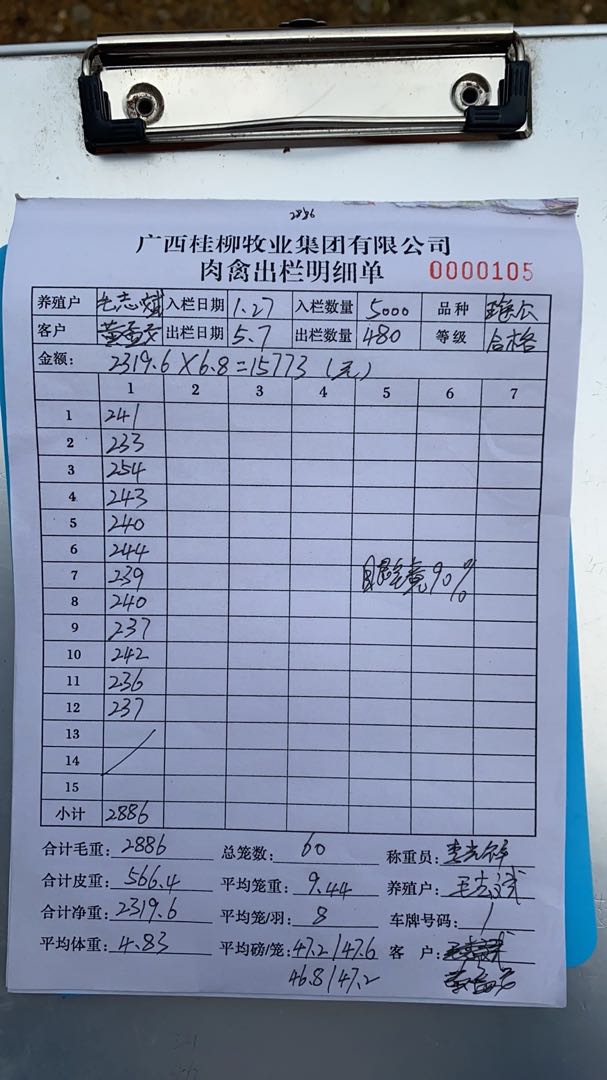 2886
广西桂柳牧业集团有限公司
肉禽出栏明细单 0000105
养殖户 毛志斌 入栏日期 1.27 入栏数量 5000 品种
客户 出栏日期 5.7 出栏数量 480 等级 合格
金额: 2319.6×6.8=15773(元)
1 2 3 4 5 6 7
1 241
2 233
3 254
4 243
5 240
6 244
7 239 眼镜90%
8 240
9 237
10 242
11 236
12 237
13
14
15
小计 2886
合计毛重: 2886 总笼数: 60 称重员:
合计皮重: 566.4 平均笼重: 9.44 养殖户:
合计净重: 2319.6 平均笼/羽: 8 车牌号码: /
平均体重: 4.83 平均磅/笼: 47.2/47.6 客户:
46.8/47.2